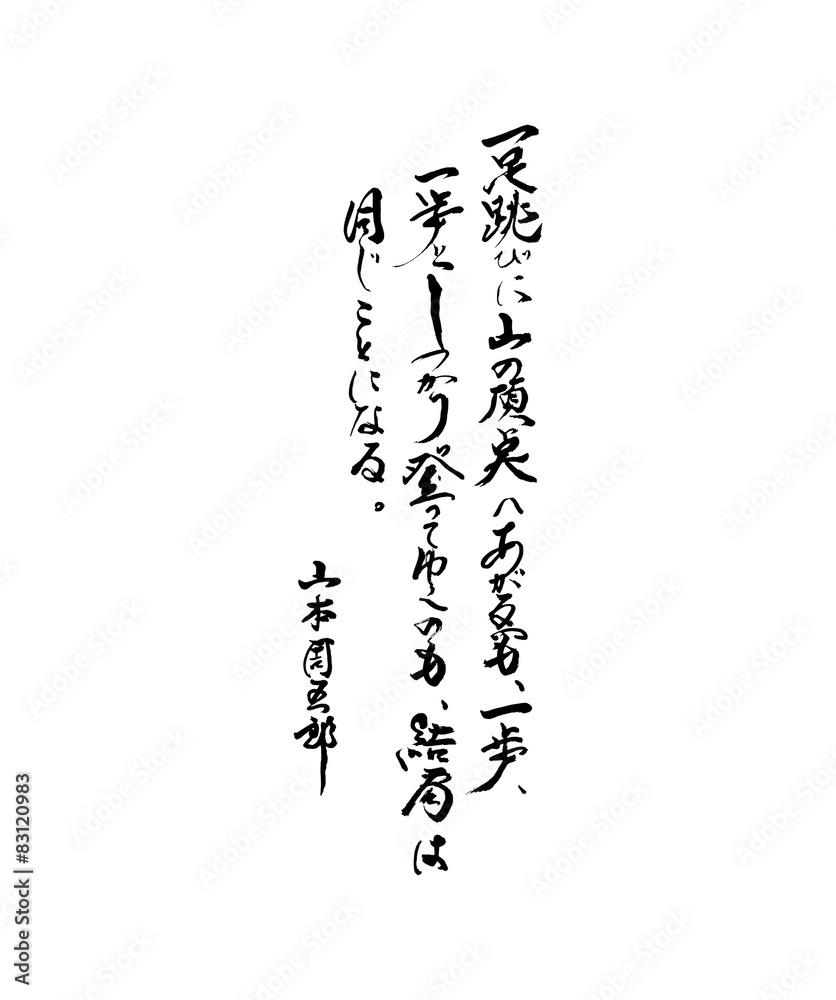 一足跳びに山の頂点へあがるのも、一歩、
一歩としっかり登ってゆくのも、結局は
同じことになる。
山本周五郎
Adobe Stock | #83120983